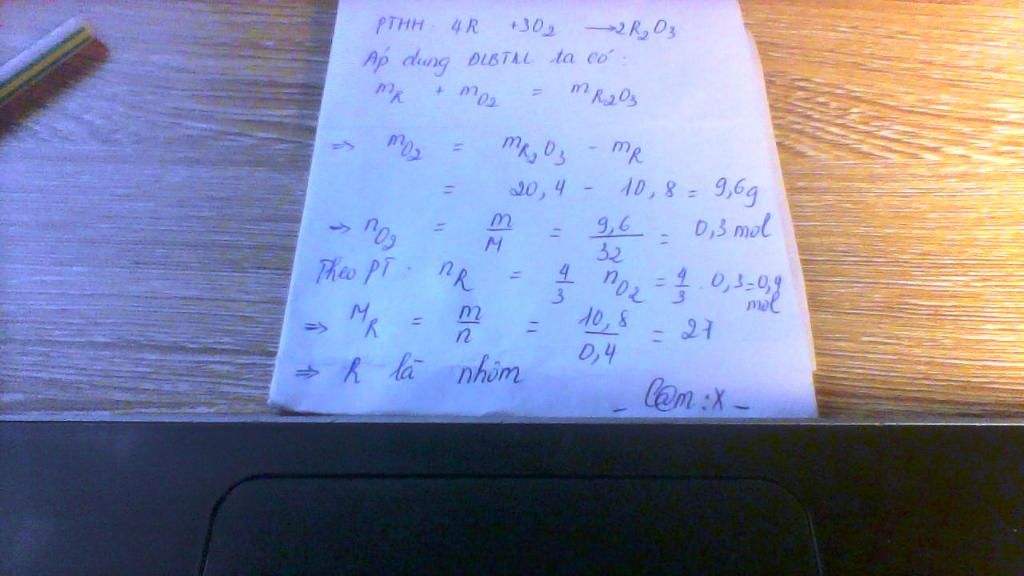 PTHH: 4R + 3O2 → 2R2O3
Áp dung ĐLBTKL ta có:
mR + mO2 = mR2O3
=> mO2 = mR2O3 - mR
= 20,4 - 10,8 = 9,6g
=> nO2 = m/M = 9,6/32 = 0,3 mol
Theo PT: nR = 4/3 nO2 = 4/3 . 0,3 = 0,4 mol
=> MR = m/n = 10,8/0,4 = 27
=> R là nhôm
_ C@m :X _